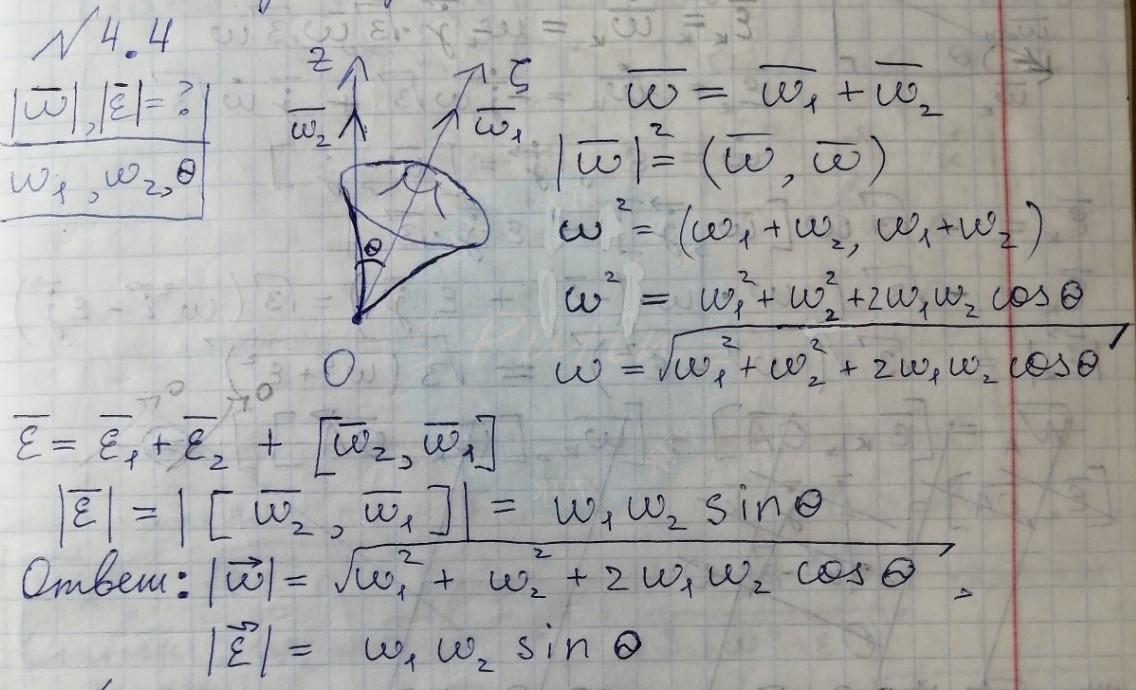 № 4.4
|ω̅|, |ε̅| = ?
ω₁, ω₂, θ
z
ζ
ω̅₂
ω̅₁
θ
O
ω̅ = ω̅₁ + ω̅₂
|ω̅|² = (ω̅, ω̅)
ω² = (ω₁ + ω₂, ω₁ + ω₂)
|ω²| = ω₁² + ω₂² + 2ω₁ω₂ cos θ
ω = √(ω₁² + ω₂² + 2ω₁ω₂ cos θ)
0 0
ε̅ = ε̅₁ + ε̅₂ + [ω̅₂, ω̅₁]
|ε̅| = |[ω̅₂, ω̅₁]| = ω₁ω₂ sin θ
Ответ: |ω⃗| = √(ω₁² + ω₂² + 2ω₁ω₂ cos θ),
|ε⃗| = ω₁ω₂ sin θ